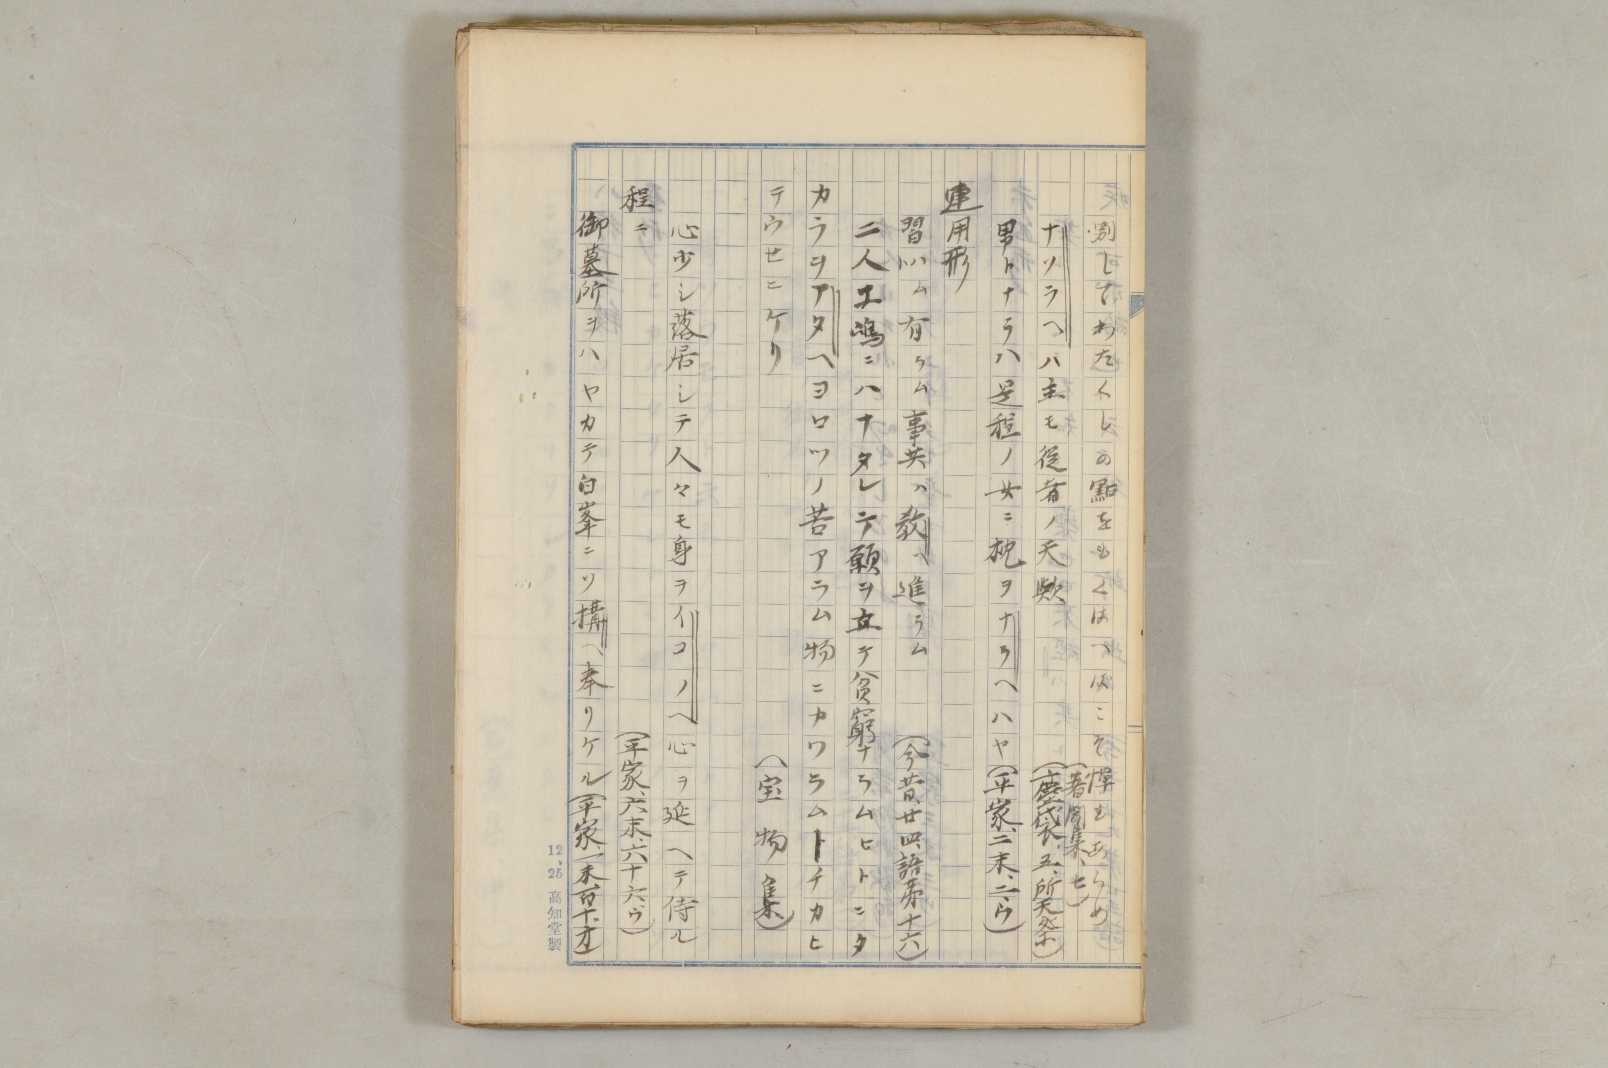 別してわたくしの點をもくはへばこそ憚もあらめ
(著聞集、七)
ナソラヘハ主モ從者ノ天歟
(塵袋、五、所天祭)
男トナラハ是程ノ女ニ枕ヲナラヘハヤ(平家、二末、二、ウ)
連用形
習ハム有ラム事共ハ教ヘ進ラム(今昔、廿四、語第十六)
二人工嶋ニハナタレテ願ヲ立テ貧窮ナラムヒトニタ
カラヲアタヘヨロツノ苦アラム物ニカワラムトチカヒ
テウセニケリ(宝物集)
心少シ落居シテ人々モ身ヲイコノヘ心ヲ延ヘテ侍ル
程ニ(平家、六末、六十六、ウ)
御墓所ヲハヤカテ白峯ニソ構ヘ奉リケル(平家、一末、百十、オ)
12、25 高知堂製